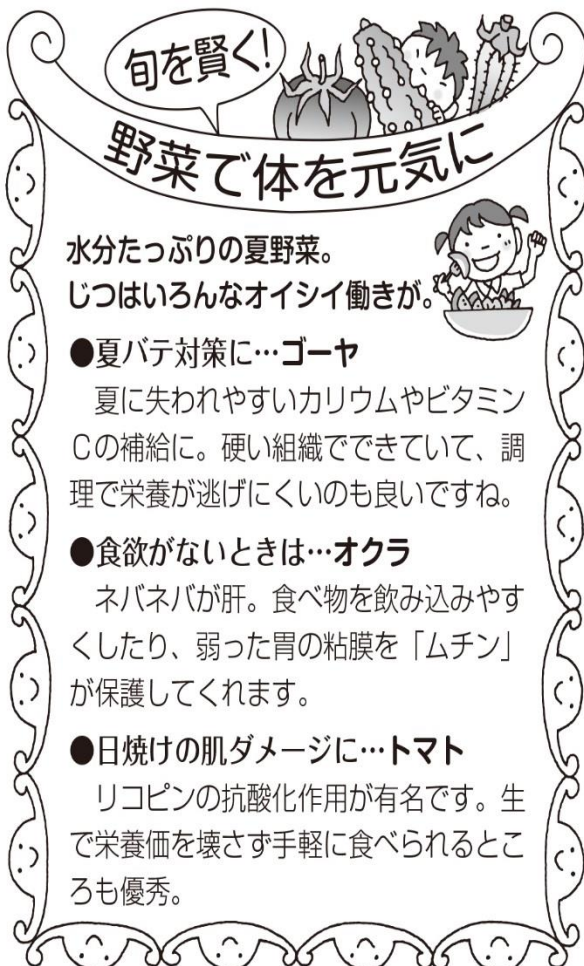 旬を賢く!
野菜で体を元気に
水分たっぷりの夏野菜。
じつはいろんなオイシイ働きが。
●夏バテ対策に…ゴーヤ
　夏に失われやすいカリウムやビタミン
Cの補給に。硬い組織でできていて、調
理で栄養が逃げにくいのも良いですね。
●食欲がないときは…オクラ
　ネバネバが肝。食べ物を飲み込みやす
くしたり、弱った胃の粘膜を「ムチン」
が保護してくれます。
●日焼けの肌ダメージに…トマト
　リコピンの抗酸化作用が有名です。生
で栄養価を壊さず手軽に食べられるとこ
ろも優秀。